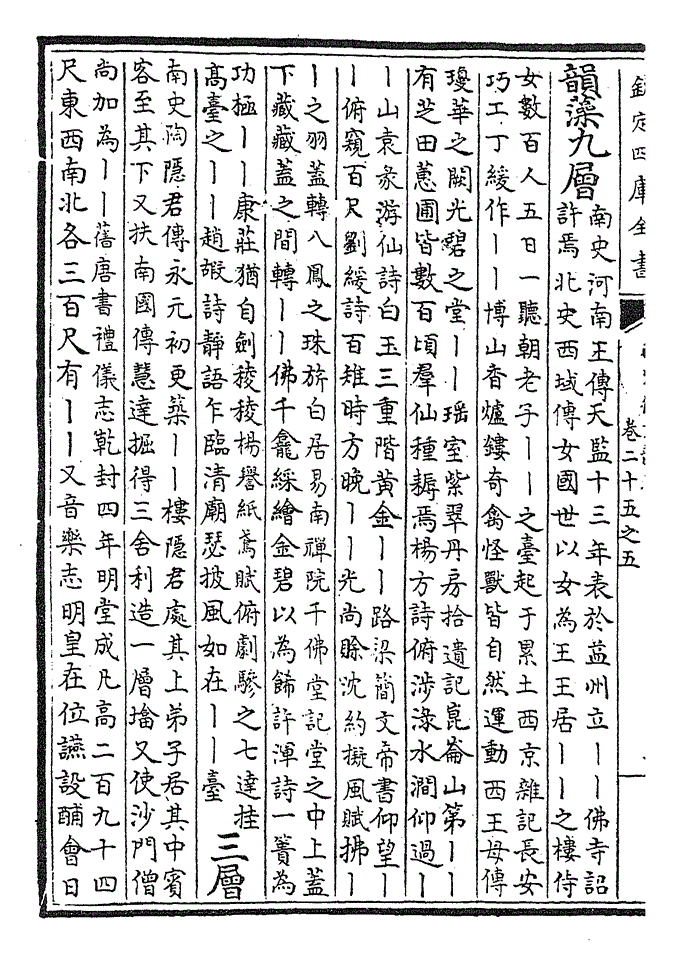 欽定四庫全書
卷二十五之五
韻藻九層
南史河南王傳天監十三年表於益州立丨丨佛寺詔
許焉北史西域傳女國世以女為王王居丨丨之樓侍
女數百人五日一聽朝老子丨丨之臺起于累土西京雜記長安
巧工丁緩作丨丨博山香爐鏤奇禽怪獸皆自然運動西王母傳
瓊華之闕光碧之堂丨丨瑶室紫翠丹房拾遺記崑崙山第丨丨
有芝田蕙圃皆數百頃羣仙種耨焉楊方詩俯涉淥水澗仰過丨
丨山袁彖游仙詩白玉三重階黄金丨丨路梁簡文帝書仰望丨
丨俯窺百尺劉緩詩百雉時方晚丨丨光尚賒沈約擬風賦拂丨
丨之羽蓋轉八鳳之珠旂白居易南禪院千佛堂記堂之中上蓋
下藏藏蓋之間轉丨丨佛千龕綵繪金碧以為飾許渾詩一簣為
功極丨丨康莊猶自劍稜稜楊譽紙鳶賦俯劇驂之七達挂
髙臺之丨丨趙嘏詩靜語乍臨清廟瑟披風如在丨丨臺
三層
南史陶隱君傳永元初更築丨丨樓隱君處其上弟子居其中賓
客至其下又扶南國傳慧達掘得三舍利造一層塔又使沙門僧
尚加為丨丨舊唐書禮儀志乾封四年明堂成凡高二百九十四
尺東西南北各三百尺有丨丨又音樂志明皇在位讌設酺會日